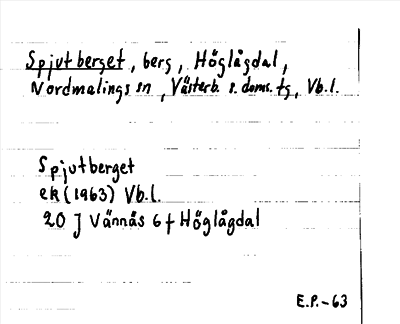 Spjutberget, berg, Höglågdal,
Nordmalings sn, Västerb. s. doms. tg, Vb.l.
Spjutberget
ek (1963) Vb.l.
20 J Vännäs 6 f Höglågdal
E.P.-63